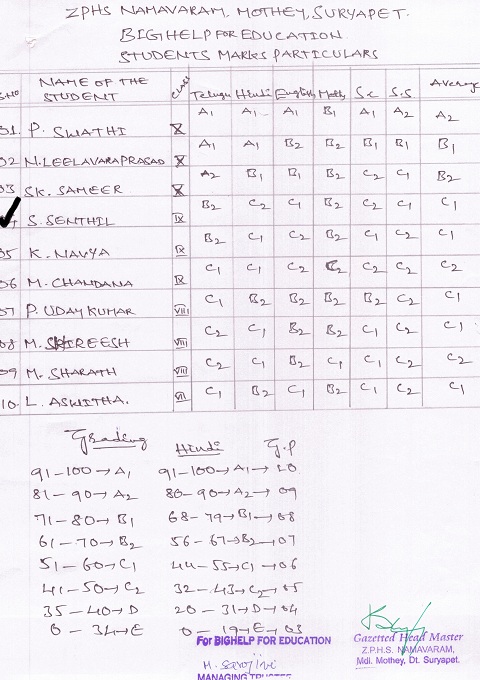 ZPHS NAMAVARAM, MOTHEY, SURYAPET.
BIGHELP FOR EDUCATION
STUDENTS MARKS PARTICULARS
S.No NAME OF THE STUDENT Class Telugu Hindi English Maths S.c S.S Average
01. P. SWATHI X A1 A1 A1 B1 A1 A2 A2
02 N. LEELAVARAPRASAD X A1 A1 B2 B2 B1 B1 B1
03 SK. SAMEER X A2 B1 B1 B2 C2 C1 B2
S. SENTHIL IX B2 C2 C1 B2 C2 C1 C1
05 K. NAVYA IX B2 C1 C2 B2 C1 C2 C1
06 M. CHANDANA IX C1 C1 C2 C2 C2 C2 C2
07 P. UDAY KUMAR VIII C1 B2 B2 B2 B2 C2 C1
08 M. SHIREESH VIII C2 C1 B2 B2 C1 C2 C1
09 M. SHARATH VIII C2 C2 C1 C1 C1 C2 C2
10. L. ASWITHA. VII C1 B2 C1 B2 C1 C2 C1
Grading Hindi G.P
91-100→A1 91-100→A1→10
81-90→A2 80-90→A2→09
71-80→B1 68-79→B1→08
61-70→B2 56-67→B2→07
51-60→C1 44-55→C1→06
41-50→C2 32-43→C2→05
35-40→D 20-31→D→04
0-34→E 0-19→E→03
For BIGHELP FOR EDUCATION
M. Sarojini
MANAGING TRUSTEE
Gazetted Head Master
Z.P.H.S. NAMAVARAM,
Mdl. Mothey, Dt. Suryapet.